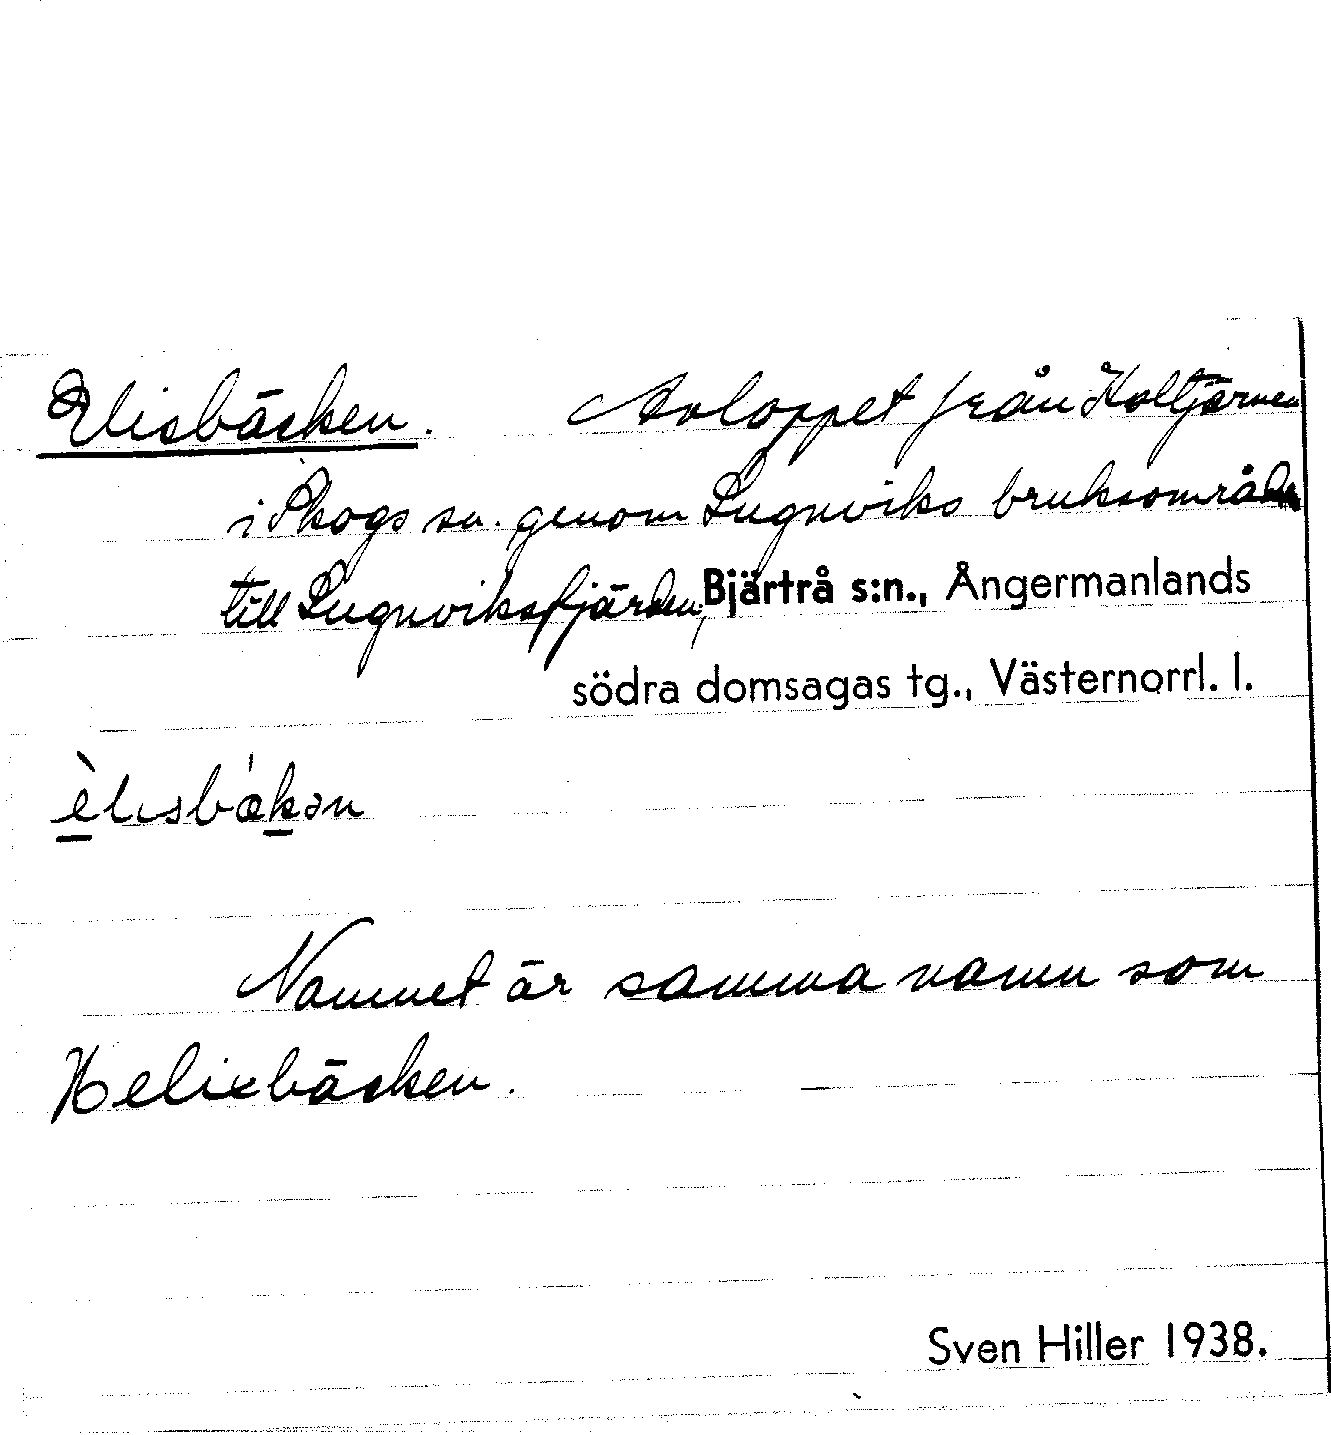 Elisbäcken. Avloppet från Holtjärnen
i Skogs sn. genom Lugnviks bruksområde
till Lugnviksfjärden, Bjärtrå s:n., Ångermanlands
södra domsagas tg., Västernorrl. l.
èlısbækən
Namnet är samma namn som
Heliebäcken.
Sven Hiller 1938.